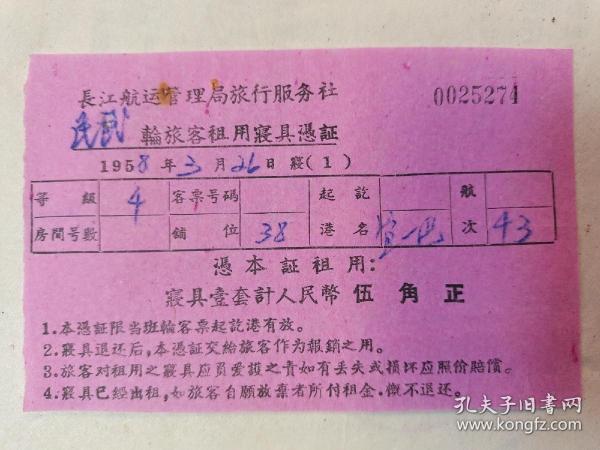 長江航运管理局旅行服务社
0025274
民武 輪旅客租用寢具憑証
1958年3月26日 寢(1)
等級 4 客票号码 起訖 航
房間号數 鋪位 38 港名 次 43
憑本証租用:
寢具壹套計人民幣 伍角正
1.本憑証限当班輪客票起訖港有放。
2.寢具退还后,本憑証交給旅客作为報銷之用。
3.旅客对租用之寢具应負爱護之責如有丢失或損坏应照价賠償。
4.寢具已經出租,如旅客自願放棄者所付租金.概不退还。
孔夫子旧書网
www.kongfz.com